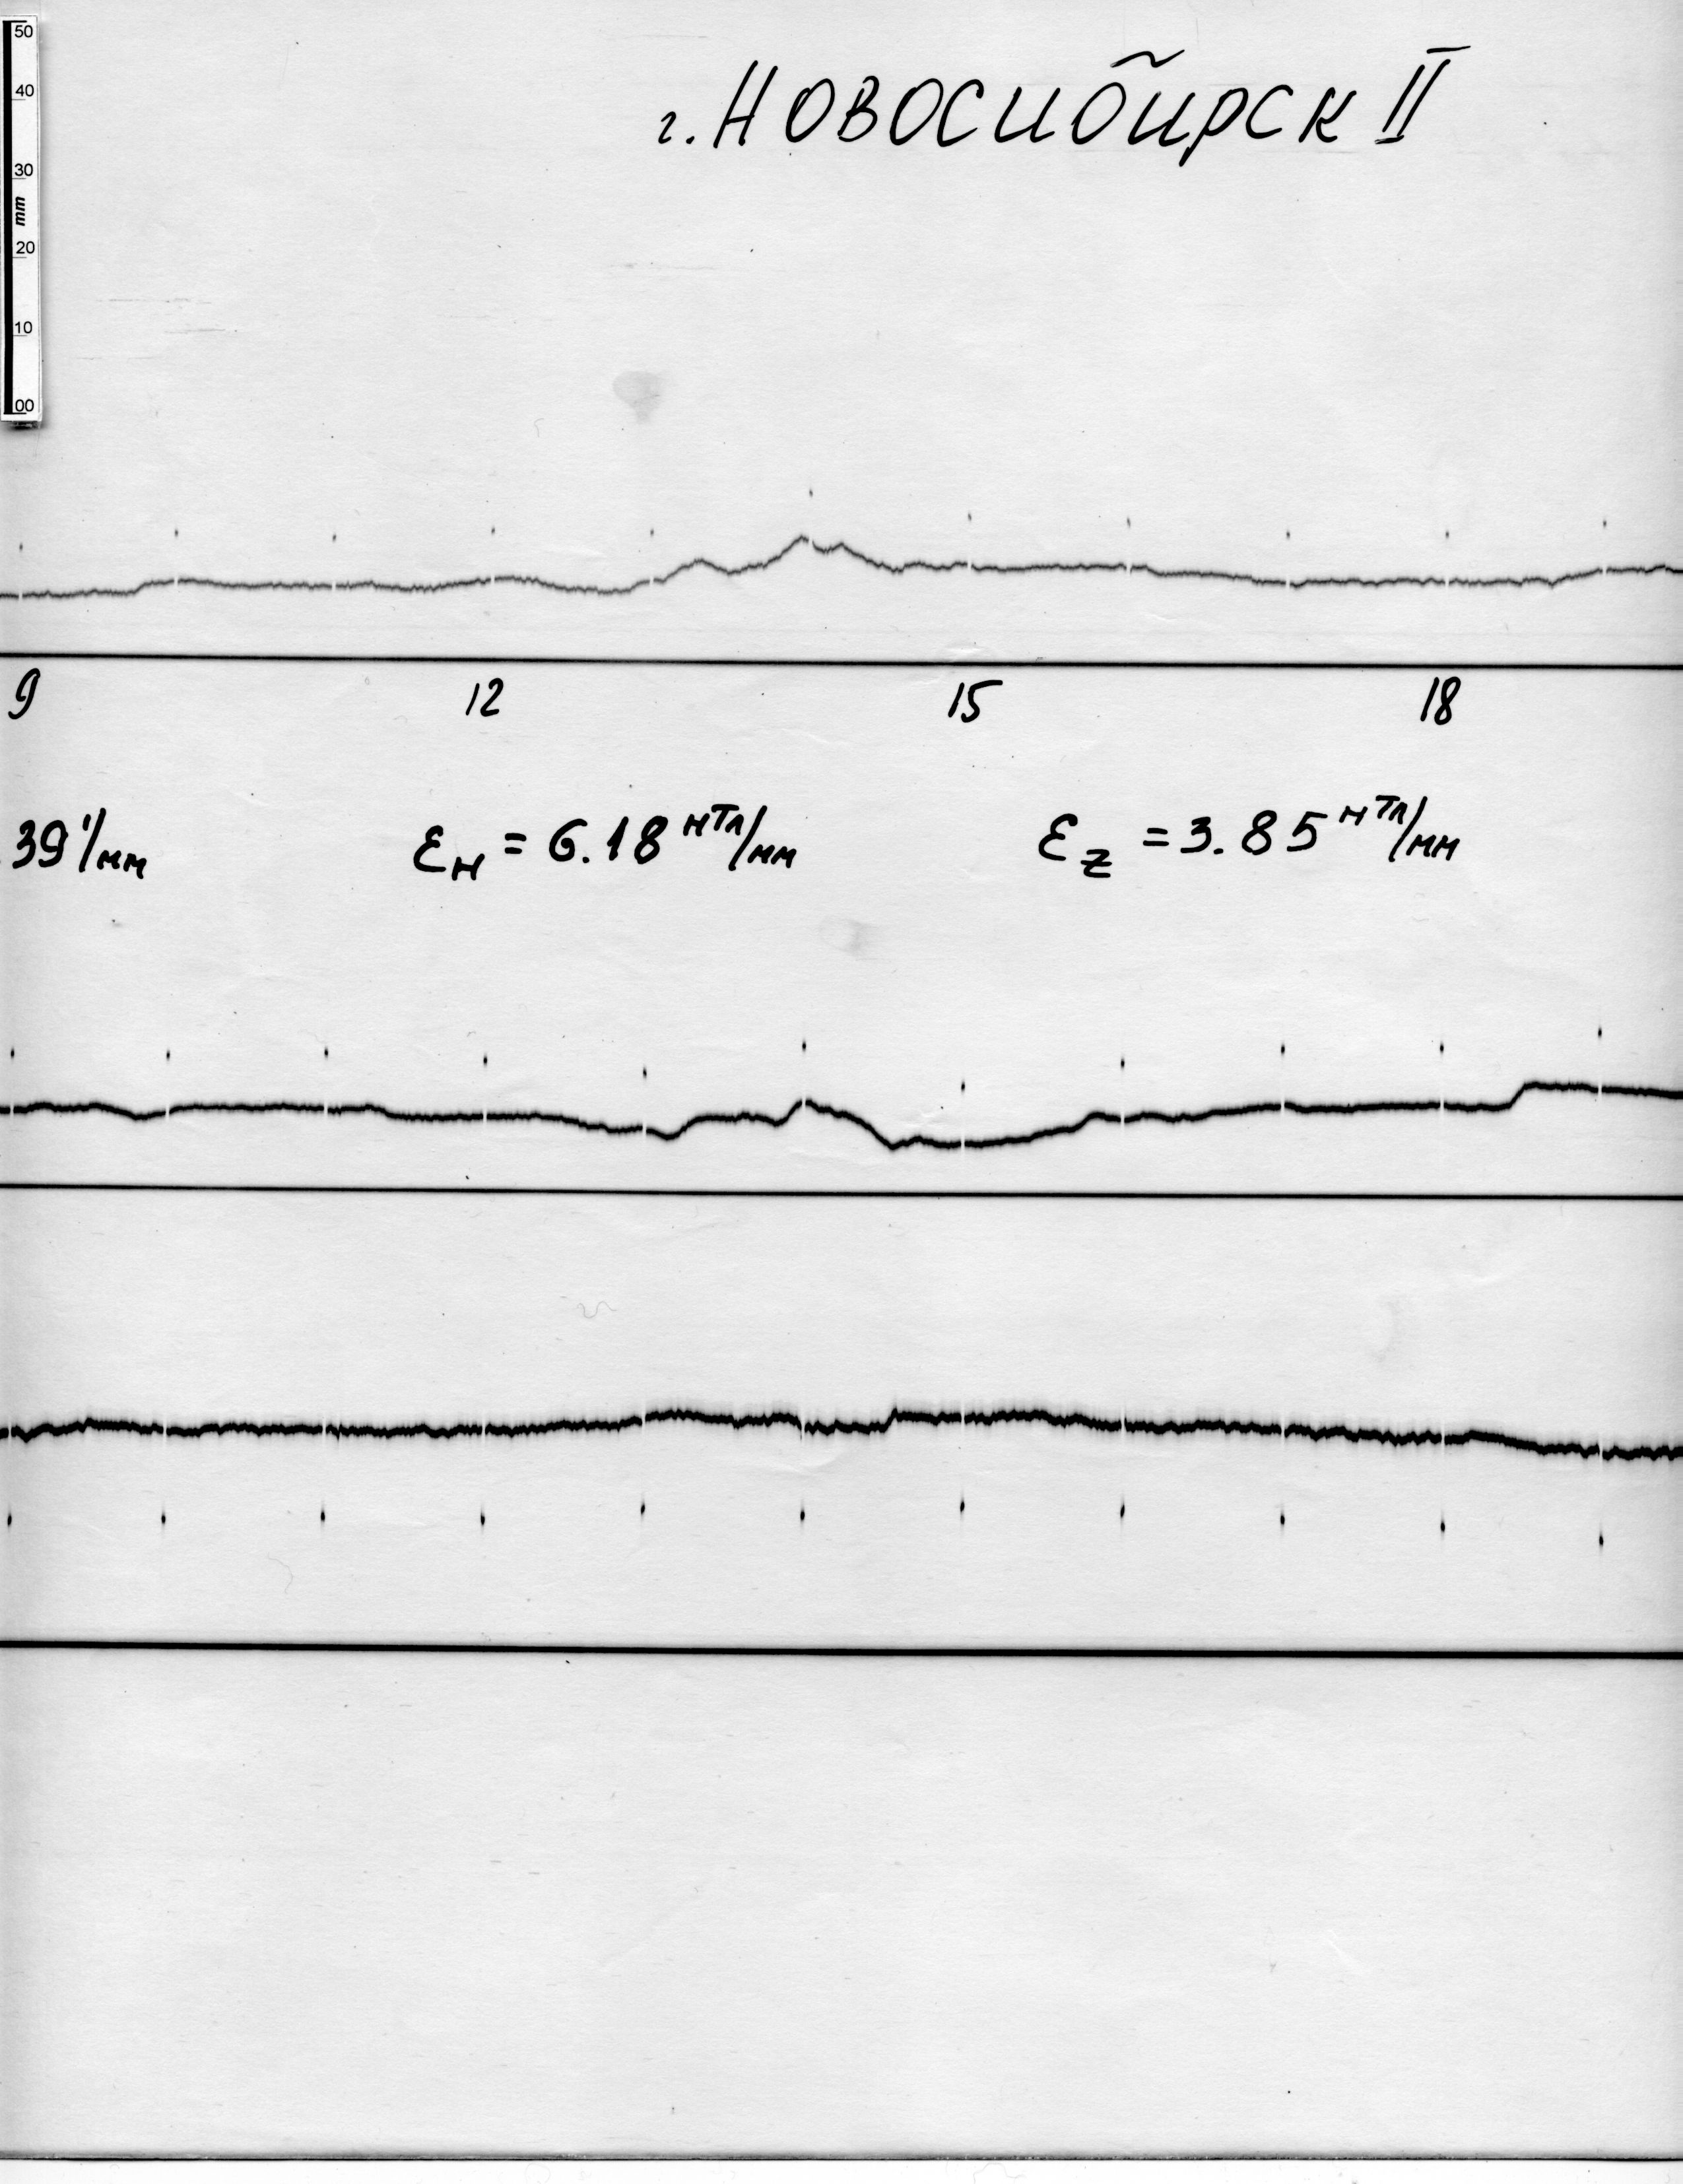 50
40
30
mm
20
10
00
г. Новосибирск II
9 12 15 18
39'/мм εH = 6.18 нТл/мм εZ = 3.85 нТл/мм